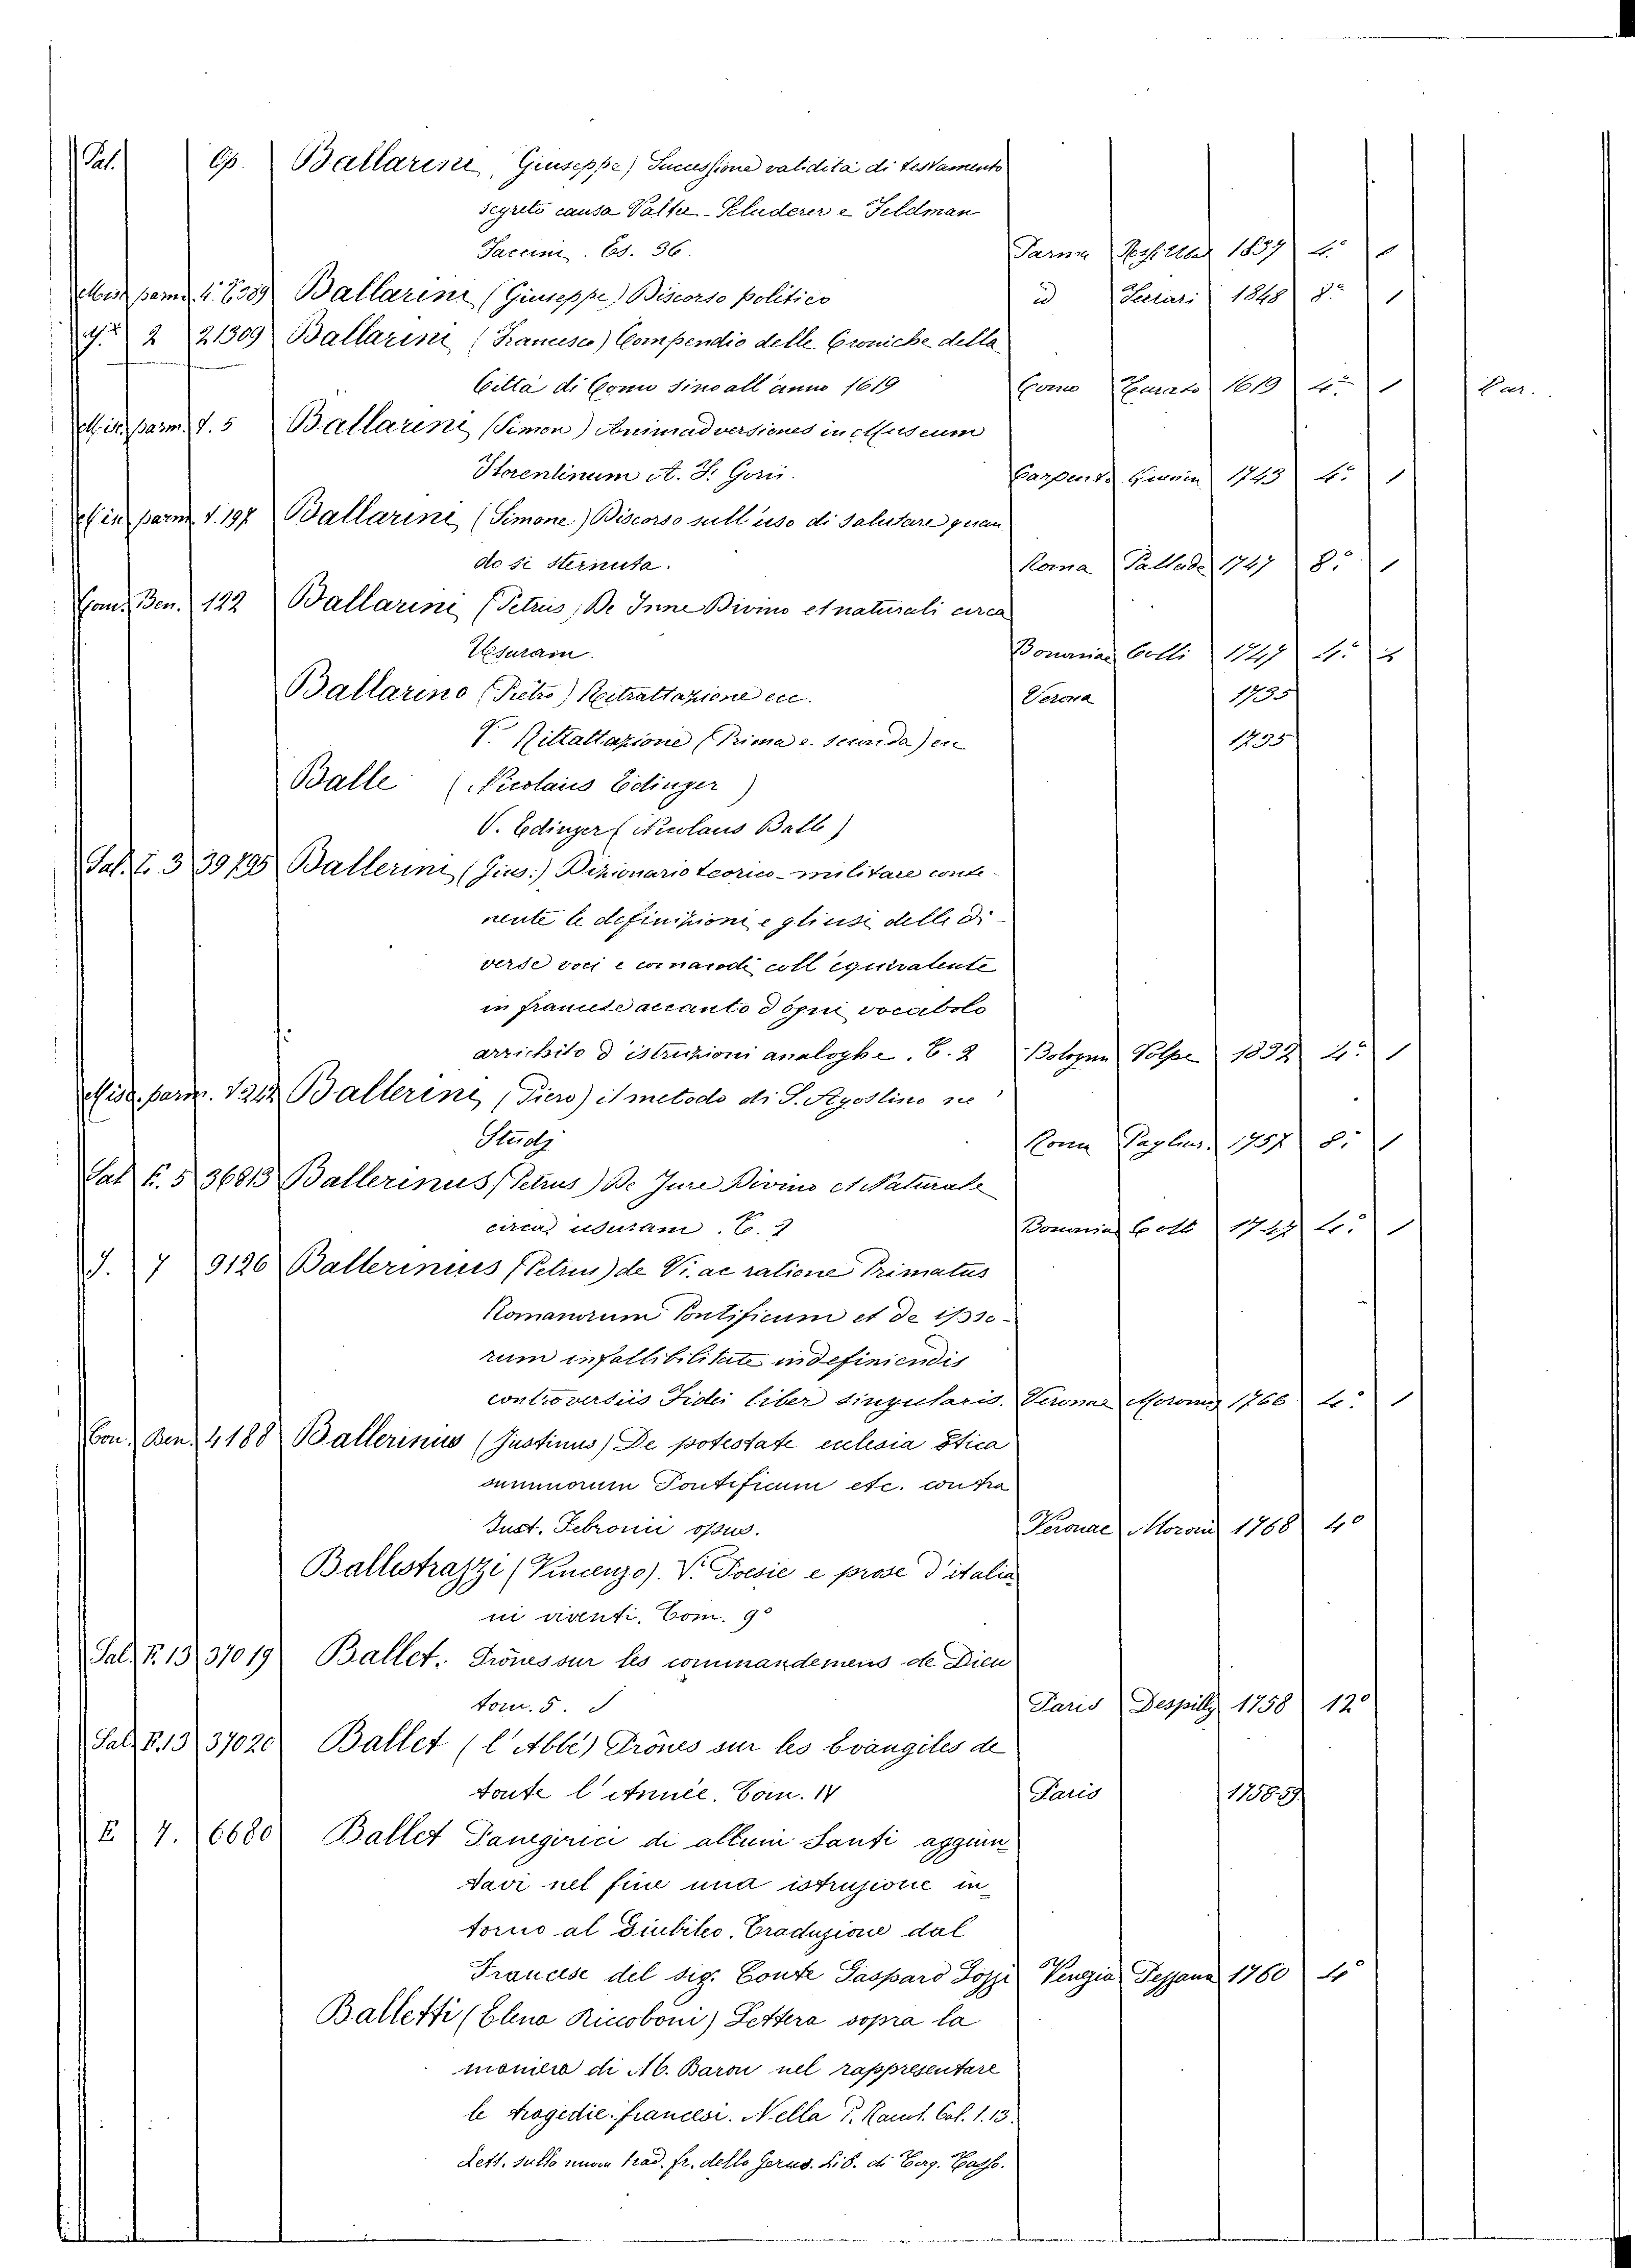 Pal. Op. Ballarini, Giuseppe) Successione validità di testamento
segreto causa Valter-Scluderer e Feldman
Saccini. Es. 36. Parma 1837 4.° 1
parm. 4. 8389 Ballarini (Giuseppe) Discorso politico id Ferrari 1848 8.° 1
2 21309 Ballarini (Francesco) Compendio delle Croniche della
Città di Como sino all'anno 1619 Como Turato 1619 4.° 1 Var.
Min. parm. t. 5 Ballarini (Simon) Animadversiones in Museum
Florentinum A. F. Gorii. Carpent. 1743 4.° 1
Min parm t. 197 Ballarini (Simone) Discorso sull'uso di salutare quan
do si sternuta. Roma Pallade 1747 8.° 1
Ben. 122 Ballarini (Petrus, De Inne Divino et naturali circa
Usuram. Bononiae Colli 1747 4.° 2
Ballarino (Pietro) Ritrattazione ecc. Verona 1735
V. Rittattazione (Prima e seconda) ec 1735
Balle (Nicolaus Edinger)
V. Edinger (Nicolaus Ball)
Sal. F. 3 39795 Ballerini (Gius:) Dizionario teorico-militare conte-
nente le definizioni e gli usi delle di-
verse voci e comandi coll'equivalente
in francese accanto d'ogni vocabolo
arrichito d'istruzioni analoghe. C. 2 Bologna Volpe 1832 4.° 1
Misc. parm. Ballerini, (Piero) il metodo di S. Agostino ne'
Studj Roma Paglar. 1757 8.° 1
Sal F. 5 36813 Ballerinus (Petrus) De Jure Divino et Naturale
circa usuram. C. 2 Bononiae Colli 1747 4.° 1
J. 7 9126 Ballerinus (Petrus) de Vi. ac ratione Primatus
Romanorum Pontificum et de ipso-
rum infallibilitate in definiendis
controversiis Fidei liber singularis. Veronae Moroni 1766 4.° 1
Con. Ben. 4188 Ballerinus (Justinus) De potestate eclesia stica
summorum Pontificum etc. contra
Just. Febronii opus. Veronae Moroni 1768 4°
Ballestrazzi (Vincenzo). V. Poesie e prose d'italia
ni viventi. Tom. 9°
Sal. F. 13 37019 Ballet. Prônes sur les commandemens de Dieu
tom. 5. Paris Despilly 1758 12°
Sal F. 13 37020 Ballet (l'Abbé) Prônes sur les Evangiles de
toute l'Année. Tom. IV Paris 1758.59
E 7. 6680 Ballet Panegirici di alluni Santi aggiun
tavi nel fine una istruzione in
torno al Giubileo. Traduzione dal
Francese del sig. Conte Gaspard Gozzi Venezia 1760 4°
Balletti (Elena Riccoboni) Lettera sopra la
maniera di M. Baron nel rappresentare
le tragedie francesi. Nella Col. 1. 13.
Lett. sulla nuova trad. fr. della Gerus. Lib. di Torq. Tasso.